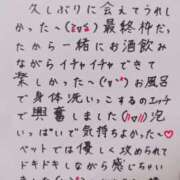 久しぶりに会えてうれし
かった〜(≧▽≦)最終枠だっ
たから一緒にお酒飲み
ながらイチャイチャできて
楽しかった〜(^o^)お風呂
で身体洗いっこするのエッチ
で興奮しました(〃ω〃)沢
いっぱいで気持ちよかった♡
ベットでは優しく攻められて
ドキドキしながら感じちゃい